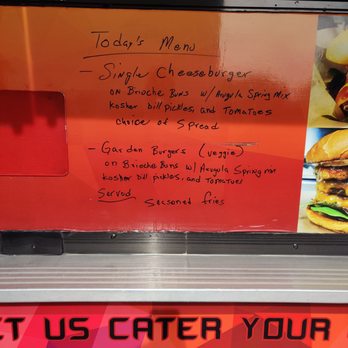 Today's Menu
- Single Cheeseburger
on Brioche Buns w/ Arugula Spring Mix
kosher dill pickles, and Tomatoes
choice of Spread
- Garden Burgers (veggie)
on Brioche Buns w/ Arugula Spring mix
kosher dill pickles, and Tomatoes
Served
Seasoned fries
ET US CATER YOUR